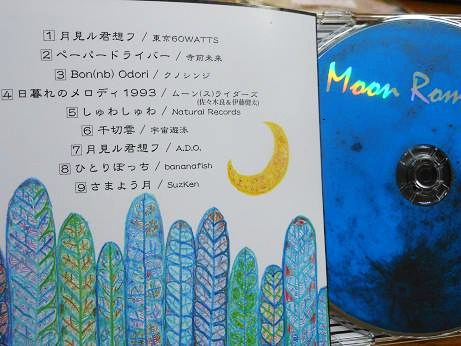 1 月見ル君想フ / 東京60WATTS
2 ペーパードライバー / 寺前未来
3 Bon(nb) Odori / クノシンジ
4 日暮れのメロディ1993 / ムーン(ス)ライダーズ
(佐々木良&伊藤健太)
5 しゅわしゅわ / Natural Records
6 千切雲 / 宇宙遊泳
7 月見ル君想フ / A.D.O.
8 ひとりぼっち / bananafish
9 さまよう月 / SuzKen
Moon Rom